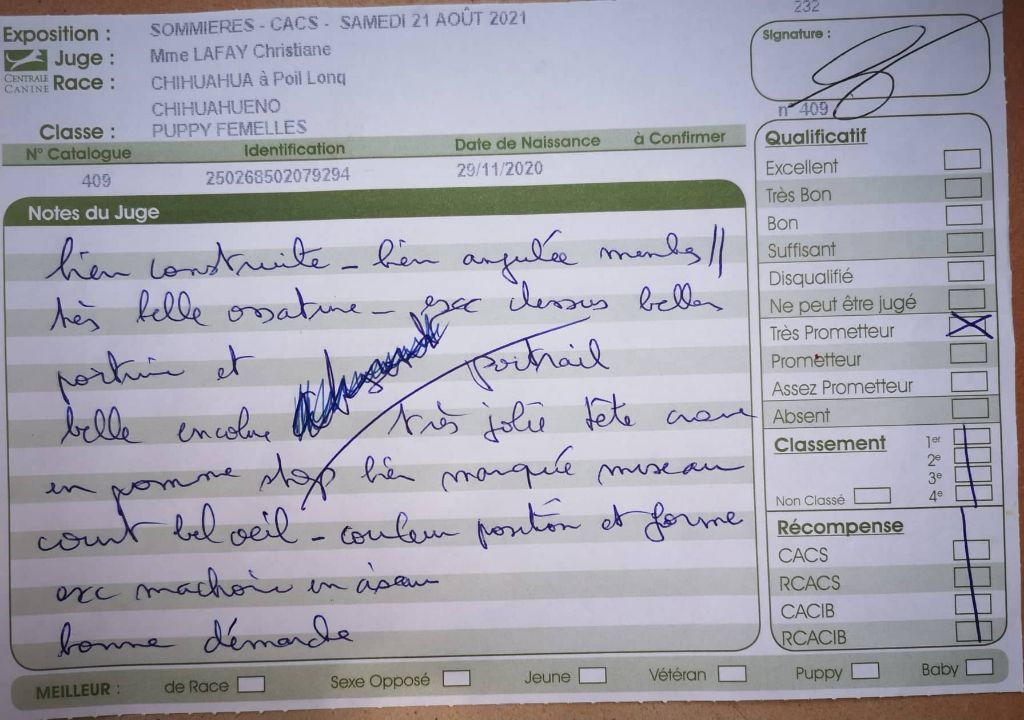 232
Exposition : SOMMIERES - CACS - SAMEDI 21 AOÛT 2021
Juge : Mme LAFAY Christiane
CENTRALE CANINE
Race : CHIHUAHUA à Poil Long
CHIHUAHUENO
Classe : PUPPY FEMELLES
Signature :
n° 409
N° Catalogue Identification Date de Naissance à Confirmer
409 250268502079294 29/11/2020
Notes du Juge
bien construite - bien angulée membs //
très belle ossature - exc dessus belles
poitrine et
poitrail
belle encolure très jolie tête crane
en pomme stop bien marquée museau
court bel oeil - couleur position et forme
exc machoire en
bonne démarche
Qualificatif
Excellent
Très Bon
Bon
Suffisant
Disqualifié
Ne peut être jugé
Très Prometteur
Prometteur
Assez Prometteur
Absent
Classement
1er
2e
3e
4e
Non Classé
Récompense
CACS
RCACS
CACIB
RCACIB
MEILLEUR : de Race Sexe Opposé Jeune Vétéran Puppy Baby